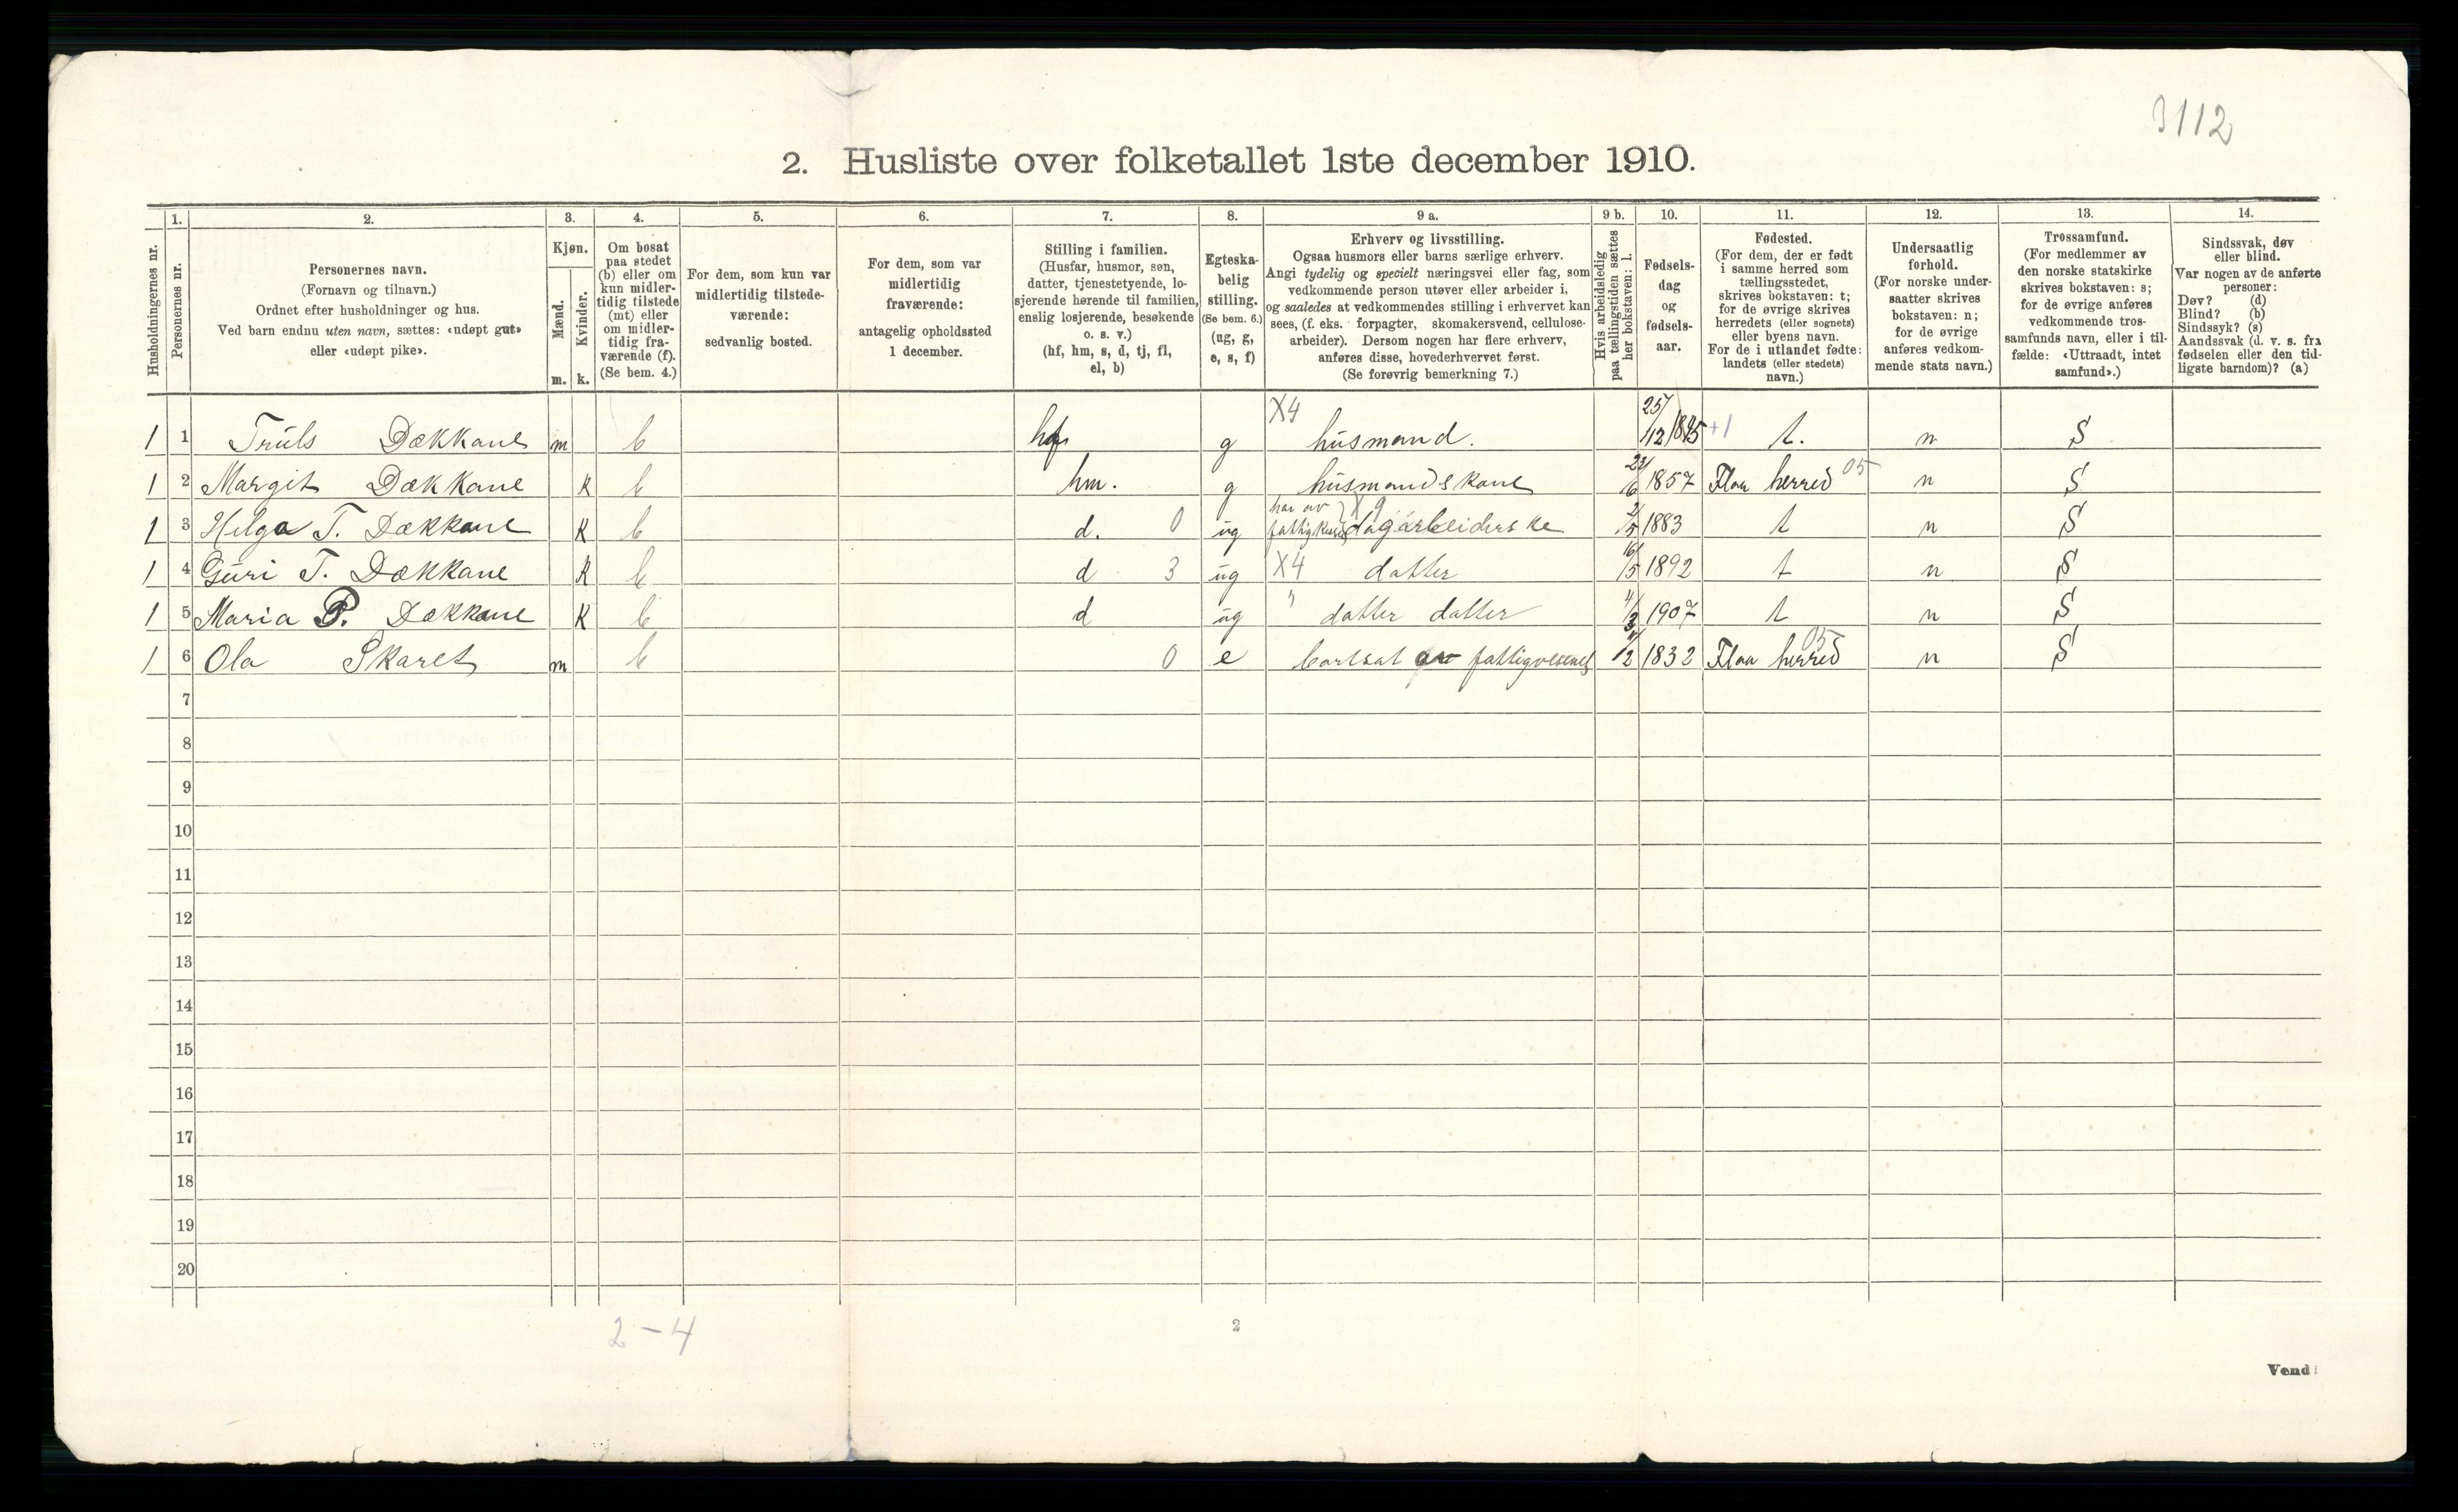 3112
2. Husliste over folketallet 1ste december 1910.
Husholdningernes nr.
1.
Personernes nr.
2.
Personernes navn.
(Fornavn og tilnavn.)
Ordnet efter husholdninger og hus.
Ved barn endnu uten navn, sættes: «udøpt gut»
eller «udøpt pike».
3.
Kjøn.
Mænd.
Kvinder.
m. k.
4.
Om bosat
paa stedet
(b) eller om
kun midler-
tidig tilstede
(mt) eller
om midler-
tidig fra-
værende (f).
(Se bem. 4.)
5.
For dem, som kun var
midlertidig tilstede-
værende:
sedvanlig bosted.
6.
For dem, som var
midlertidig
fraværende:
antagelig opholdssted
1 december.
7.
Stilling i familien.
(Husfar, husmor, søn,
datter, tjenestetyende, lo-
sjerende hørende til familien,
enslig losjerende, besøkende
o. s. v.)
(hf, hm, s, d, tj, fl,
el, b)
8.
Egteska-
belig
stilling.
(Se bem. 6.)
(ug, g,
e, s, f)
9 a.
Erhverv og livsstilling.
Ogsaa husmors eller barns særlige erhverv.
Angi tydelig og specielt næringsvei eller fag, som
vedkommende person utøver eller arbeider i,
og saaledes at vedkommendes stilling i erhvervet kan
sees, (f. eks. forpagter, skomakersvend, cellulose-
arbeider). Dersom nogen har flere erhverv,
anføres disse, hovederhvervet først.
(Se forøvrig bemerkning 7.)
9 b.
Hvis arbeidsledig
paa tællingstiden sættes
her bokstaven: l.
10.
Fødsels-
dag
og
fødsels-
aar.
11.
Fødested.
(For dem, der er født
i samme herred som
tællingsstedet,
skrives bokstaven: t;
for de øvrige skrives
herredets (eller sognets)
eller byens navn.
For de i utlandet fødte:
landets (eller stedets)
navn.)
12.
Undersaatlig
forhold.
(For norske under-
saatter skrives
bokstaven: n;
for de øvrige
anføres vedkom-
mende stats navn.)
13.
Trossamfund.
(For medlemmer av
den norske statskirke
skrives bokstaven: s;
for de øvrige anføres
vedkommende tros-
samfunds navn, eller i til-
fælde: «Uttraadt, intet
samfund».)
14.
Sindssvak, døv
eller blind.
Var nogen av de anførte
personer:
Døv? (d)
Blind? (b)
Sindssyk? (s)
Aandssvak (d. v. s. fra
fødselen eller den tid-
ligste barndom)? (a)
1 1 Truls Dækkane m b hf g X4 husmand. 25/12 +1 t. n S
1 2 Margit Dækkane k b hm. g husmandskone 1857 Flaa herred 05 n S
1 3 Helga T. Dækkane k b d. 0 ug har av X9 dagarbeiderske 2/5 1883 t n S
1 4 Guri T. Dækkane k b d 3 ug X4 datter 16/5 1892 t n S
1 5 Maria P. Dækkane k b d ug " datter datter 1907 t n S
1 6 Ola Skaret m b 0 e bortsat av fattigvesenet 1832 Flaa herred 05 n S
7
8
9
10
11
12
13
14
15
16
17
18
19
20
2-4
2
Vend!